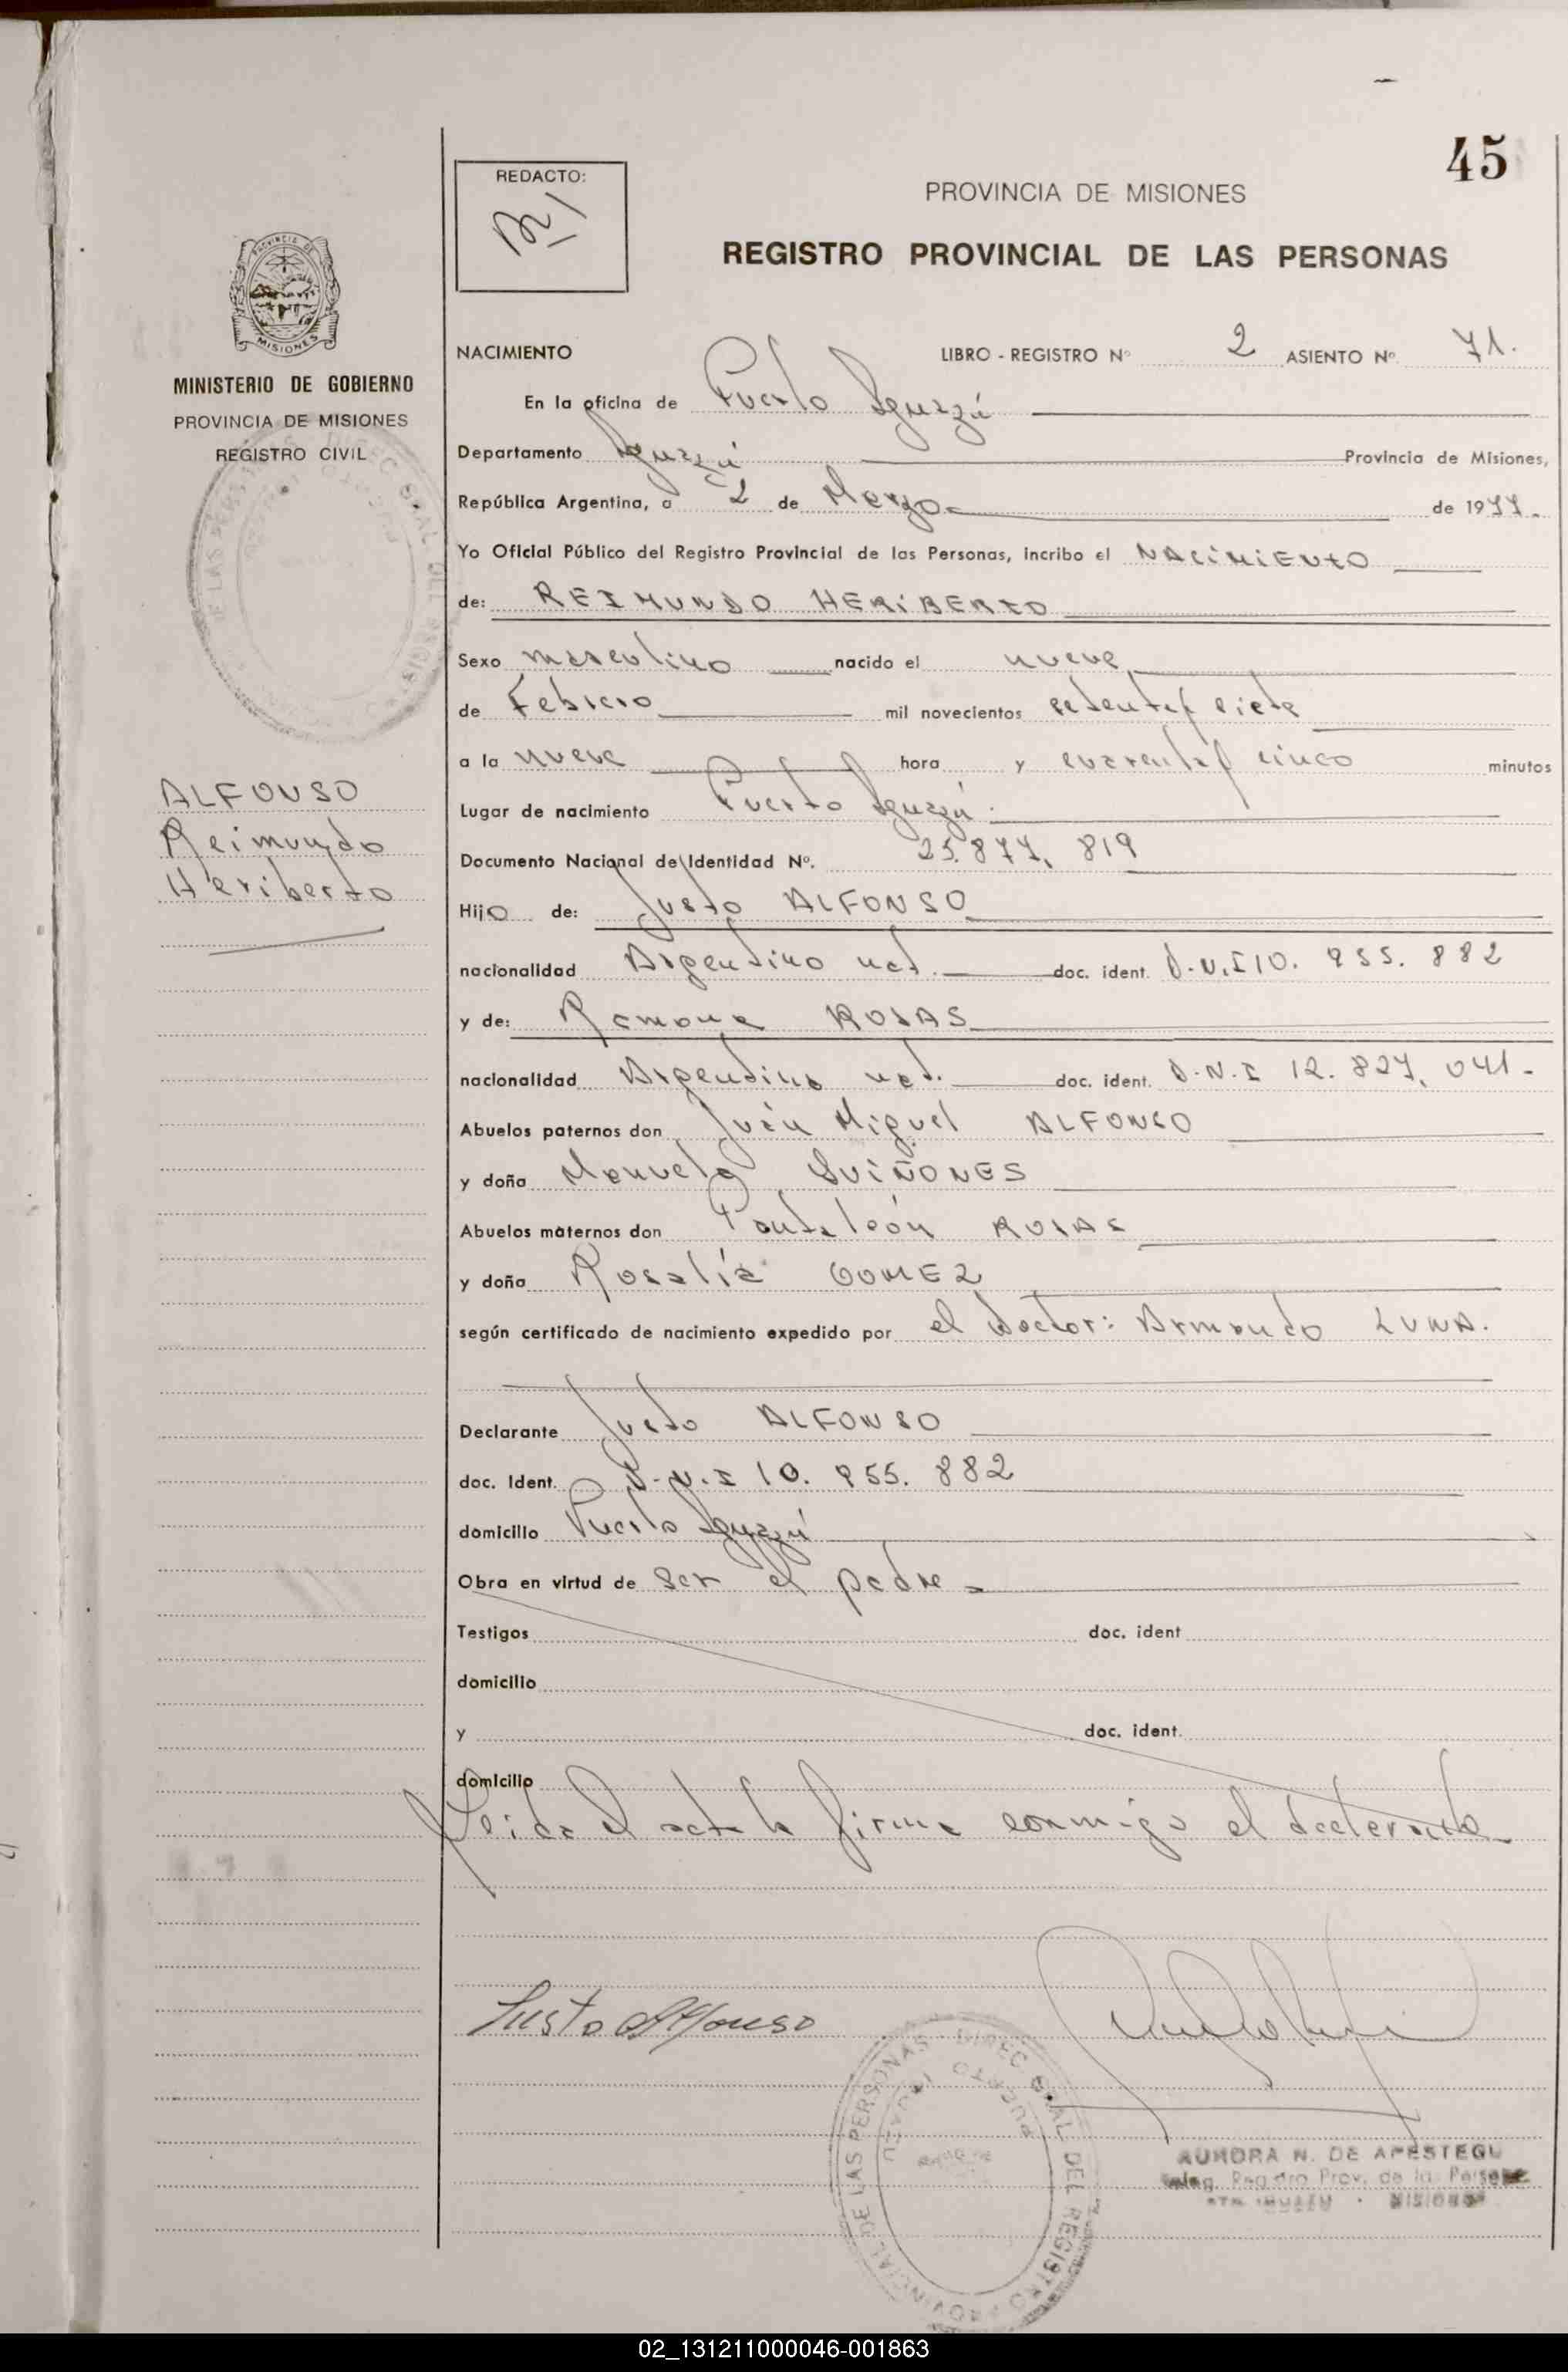 45
REDACTO:
PROVINCIA DE MISIONES
REGISTRO PROVINCIAL DE LAS PERSONAS
MISIONES
MINISTERIO DE GOBIERNO
PROVINCIA DE MISIONES
REGISTRO CIVIL
ALFONSO
Reimundo
Heriberto
NACIMIENTO LIBRO - REGISTRO Nº 2 ASIENTO Nº 71.
En la oficina de Puerto Iguazú
Departamento Iguazú Provincia de Misiones,
República Argentina, a 2 de Marzo de 1977.
Yo Oficial Público del Registro Provincial de las Personas, incribo el NACIMIENTO
de: REIMUNDO HERIBERTO
Sexo masculino nacido el nueve
de Febrero mil novecientos setenta y siete
a la nueve hora y cuarenta y cinco minutos
Lugar de nacimiento Puerto Iguazú.
Documento Nacional de Identidad Nº. 25.877.819
Hijo de: Justo ALFONSO
nacionalidad Argentino nat. doc. ident. D.N.I 10.955.882
y de: Ramona ROSAS
nacionalidad Argentina nat. doc. ident. D.N.I 12.827.041-
Abuelos paternos don Juán Miguel ALFONSO
y doña Manuela QUIÑONES
Abuelos maternos don Pantaleón ROSAS
y doña Rosalía GOMEZ
según certificado de nacimiento expedido por el Doctor: Armando LUNA.
Declarante Justo ALFONSO
doc. Ident. D.N.I 10.955.882
domicilio Puerto Iguazú
Obra en virtud de ser el padre
Testigos doc. ident
domicilio
y doc. ident.
domicilio
Leida el acta la firma conmigo el declarante
Justo Alfonso
DIREC. GRAL. DEL REGISTRO PROVINCIAL DE LAS PERSONAS
PUERTO IGUAZU
AURORA N. DE APESTEGU
Registro Prov. de la
MISIONES
02_131211000046-001863